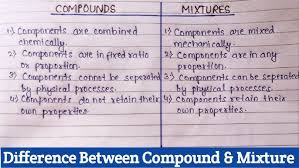 COMPOUNDS
1) Components are combined
chemically.
2) Components are in fixed ratio
or proportion.
3) Components cannot be seperated
by physical processes.
4) Components do not retain their
own properties
MIXTURES
1) Components are mixed
mechanically.
2) Components are in any
proportion.
3) Components can be seperated
by physical processes.
4) Components retain their
own properties.
Difference Between Compound & Mixture